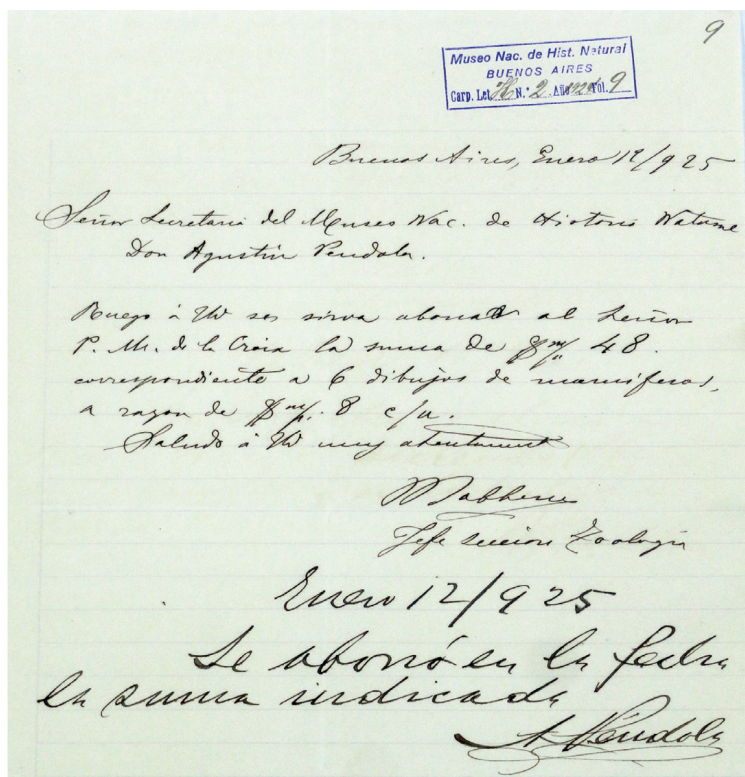 9
Museo Nac. de Hist. Natural
BUENOS AIRES
Carp. Let. H N.° 2 Año Fol. 9
Buenos Aires, Enero 12/925
Señor Secretario del Museo Nac. de Historia Natural
Don Agustin Pendola.
Ruego á Ud se sirva abonar al Señor
P. M. de la Croix la suma de $ m/n 48.
correspondiente a 6 dibujos de mamiferos,
a razon de $ m/n. 8 c/u.
Saludo á Ud muy atentamente
Dabbene
Jefe seccion Zoologia
Enero 12/925
Se abonó en la fecha
la suma indicada
A. Péndola